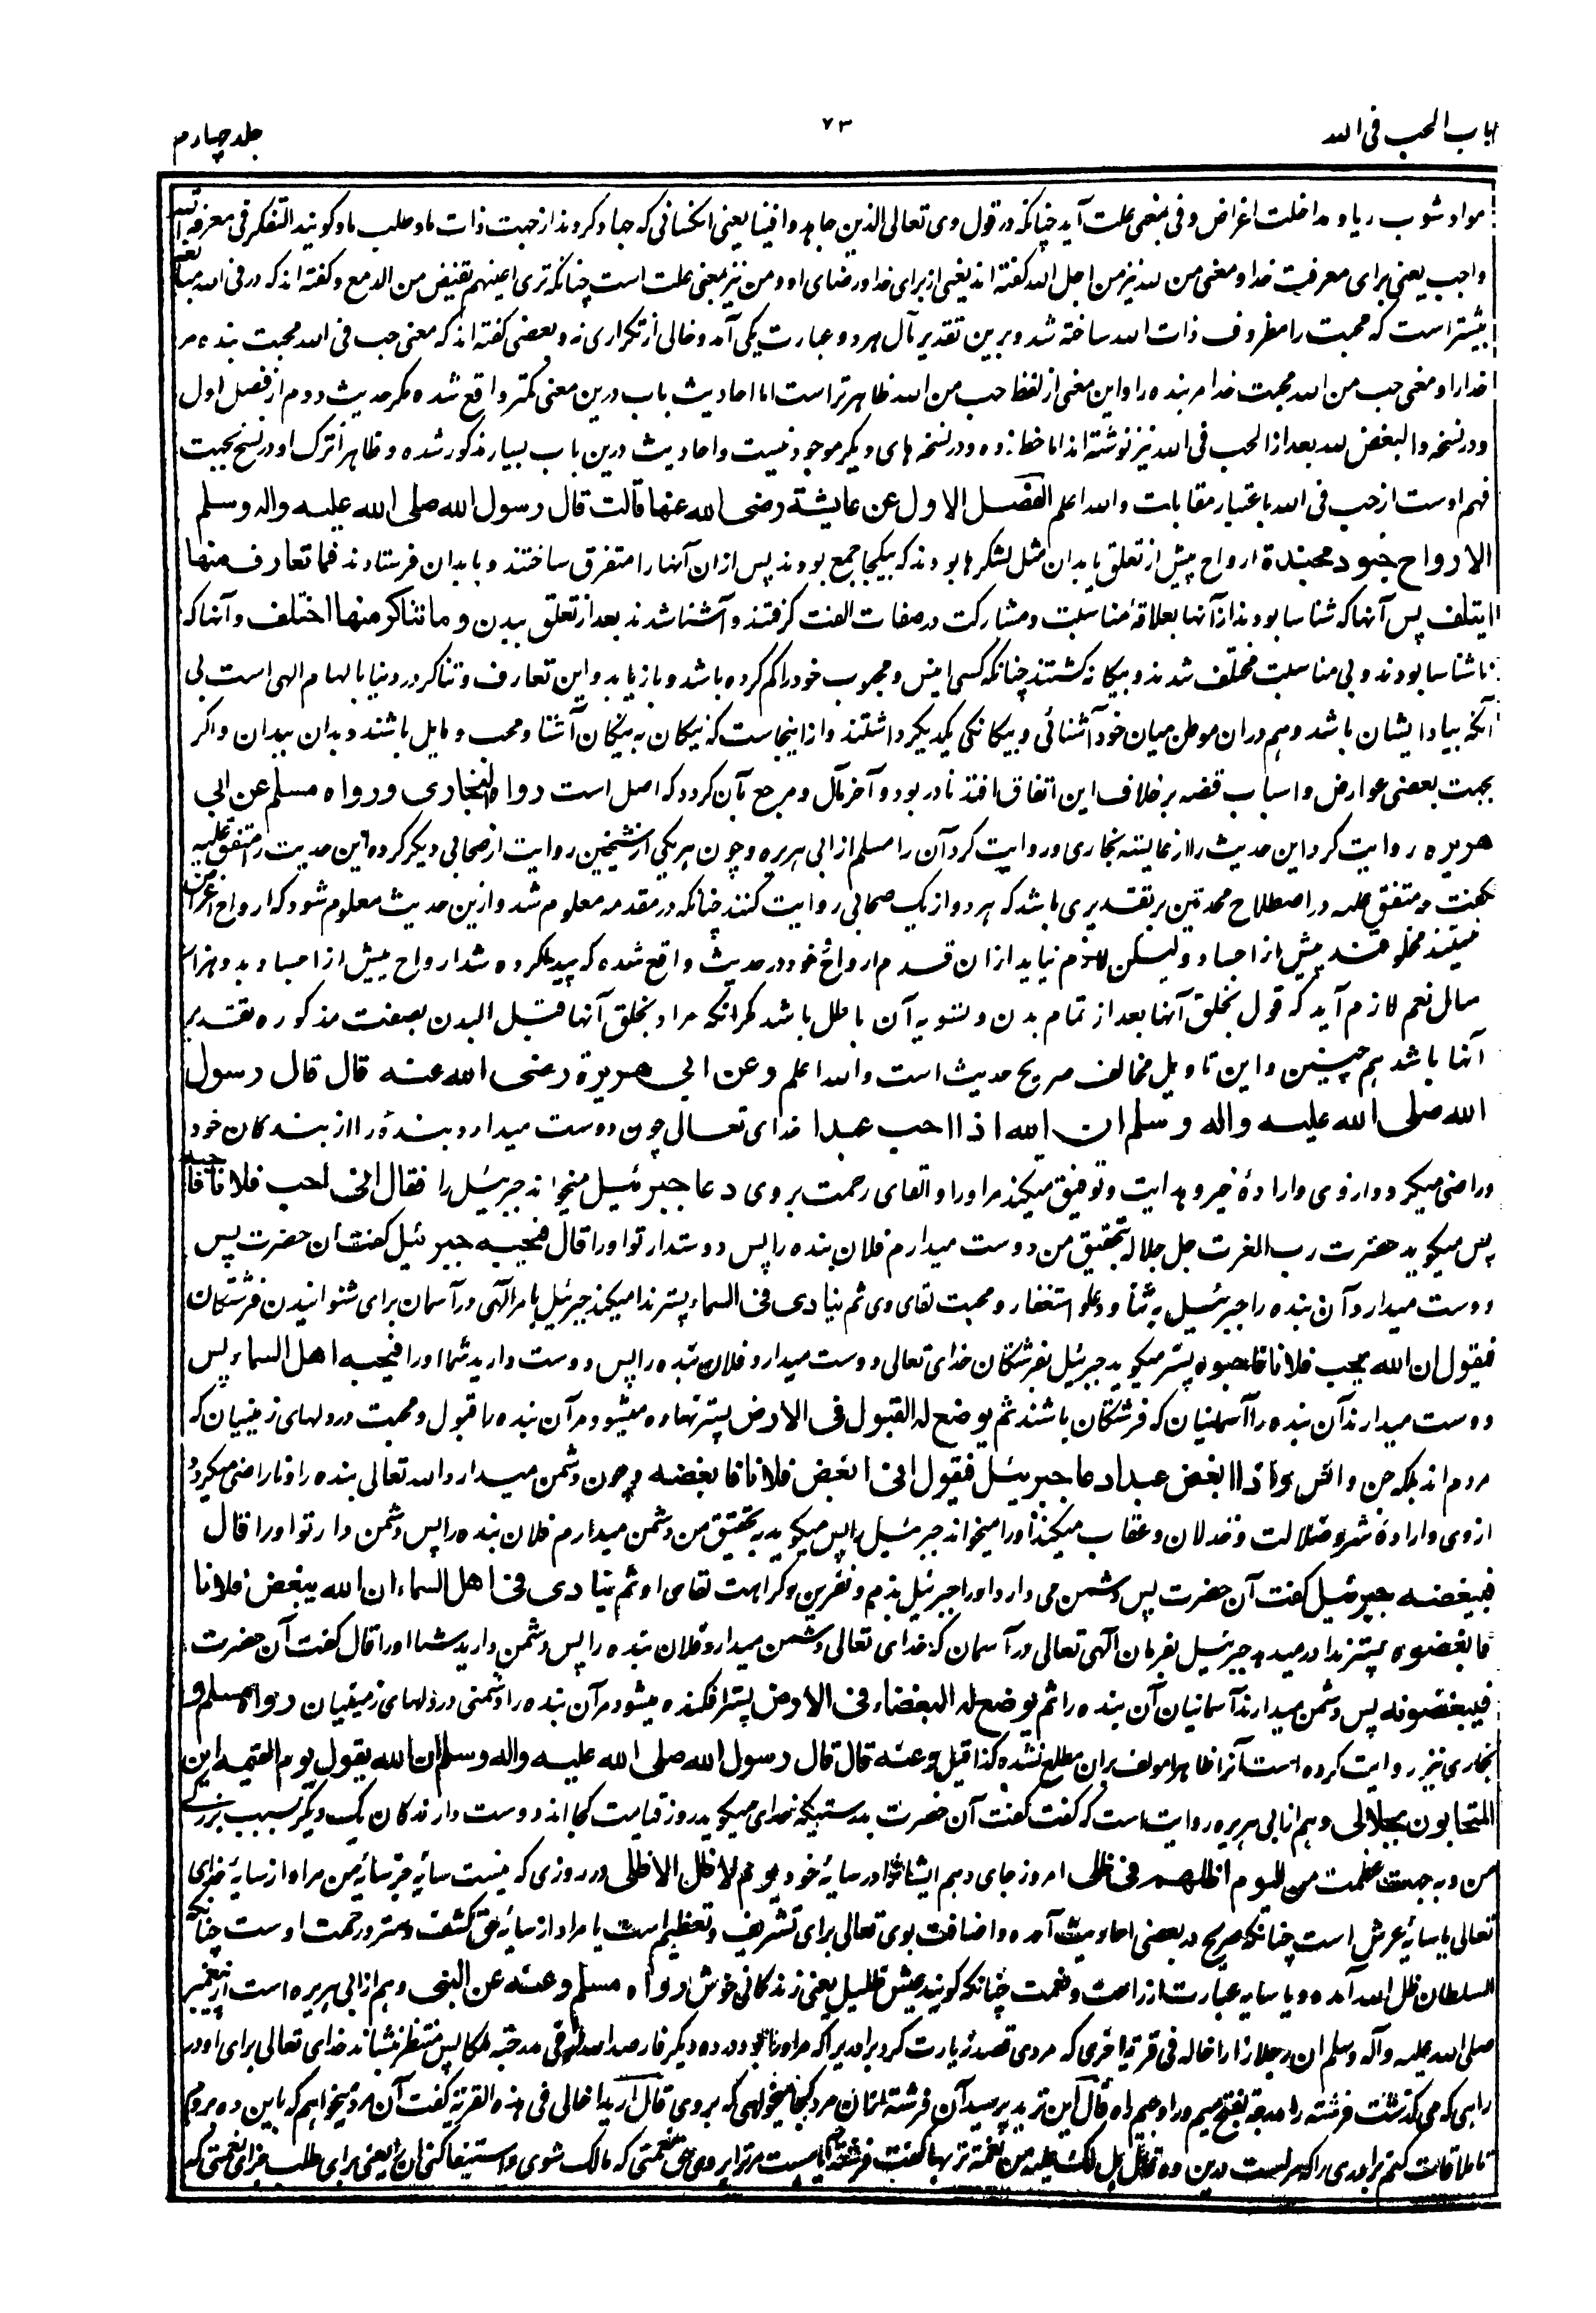 باب الحب فی الله
۷۳
جلد چهارم
مواد شوب ریا و مداخلت اغراض و فی بمعنی علت آید چنانکه در قول وی تعالی الذین جاهدوا فینا یعنی آنکسانی که جهاد کردند از جهت ذات ما و طلب ما و گویند التفکر فی معرفة الله
واجب یعنی برای معرفت خدا و معنی من لله نیز من اجل الله گفته اند یعنی از برای خدا و رضای او و من نیز بمعنی علت است چنانکه تری اعینهم تفیض من الدمع و گفته اند که در فی الله مبالغه
بیشتر است که محبت را مظروف ذات الله ساخته شد و برین تقدیر مآل هر دو عبارت یکی آمد و خالی از تکراری نه و بعضی گفته اند که معنی حب فی الله محبت بنده مر
خدا را و معنی حب من الله محبت خدا مر بنده را و این معنی از لفظ حب من الله ظاهرتر است اما احادیث باب درین معنی کمتر واقع شده مگر حدیث دوم از فصل اول
و در نسخه والبغض لله بعد از الحب فی الله نیز نوشته اند اما خط زده و در نسخه های دیگر موجود نیست و احادیث درین باب بسیار مذکور شده و ظاهرا ترک او در نسخ بجهت
فهم اوست از حب فی الله باعتبار مقابلت والله اعلم الفصل الاول عن عایشة رضی الله عنها قالت قال رسول الله صلی الله علیه واله وسلم
الارواح جنود مجندة ارواح پیش از تعلق بابدان مثل لشکرها بودند که بیکجا جمع بودند پس ازان آنها را متفرق ساختند و بابدان فرستادند فما تعارف منها
ایتلف پس آنها که شناسا بودند از آنها بعلاقه مناسبت و مشارکت در صفات الفت گرفتند و آشنا شدند بعد از تعلق ببدن وما تناکر منها اختلف و آنها که
ناشناسا بودند و بی مناسبت مختلف شدند و بیگانه گشتند چنانکه کسی انیس و محبوب خود را گم کرده باشد و بازیابد و این تعارف و تناکر در دنیا بالهام الهی است بی
آنکه بیاد ایشان باشد و هم دران موطن میان خود آشنائی و بیگانگی یکدیگر داشتند و ازینجاست که نیکان به نیکان آشنا و محب و مایل باشند و بدان ببدان و اگر
بجهت بعضی عوارض و اسباب قضیه برخلاف این اتفاق افتد نادر بود و آخر مآل و مرجع بآن گردد که اصل است رواه البخاری ورواه مسلم عن ابی
هریره روایت کرد این حدیث را از عایشه بخاری و روایت کرد آن را مسلم از ابی هریره و چون هر یکی از شیخین روایت از صحابی دیگر کرده این حدیث را متفق علیه
نگفت و متفق علیه در اصطلاح محدثین بر تقدیری باشد که هر دو از یک صحابی روایت کنند چنانکه در مقدمه معلوم شد و ازین حدیث معلوم شود که ارواح اعراض
نیستند مخلوقند پیش از اجساد ولیکن لازم نیاید ازان قدم ارواح خود در حدیث واقع شده که پیدا کرده شد ارواح پیش از اجساد بدو هزار
سال نعم لازم آید که قول بخلق آنها بعد از تمام بدن و تسویه آن باطل باشد مگر آنکه مراد بخلق آنها قبل البدن بصفت مذکوره تقدیر
آنها باشد هم چنین و این تاویل مخالف صریح حدیث است والله اعلم وعن ابی هریرة رضی الله عنه قال قال رسول
الله صلی الله علیه واله وسلم ان الله اذا احب عبدا خدای تعالی چون دوست میدارد بنده را از بندگان خود
و راضی میگردد ازوی و اراده خیر و هدایت و توفیق میکند مر او را و القای رحمت بروی دعا جبرئیل میخواند جبرئیل را فقال انی احب فلانا فاحبه
پس میگوید حضرت رب العزت جل جلاله بتحقیق من دوست میدارم فلان بنده را پس دوستدار تو او را قال فیحبه جبرئیل گفت آن حضرت پس
دوست میدارد آن بنده را جبرئیل به ثنا و دعا و استغفار و محبت لقای وی ثم ینادی فی السماء پستر ندا میکند جبرئیل بامر الهی در آسمان برای شنوانیدن فرشتگان
فیقول ان الله یحب فلانا فاحبوه پستر میگوید جبرئیل بفرشتگان خدای تعالی دوست میدارد فلان بنده را پس دوست دارید شما او را فیحبه اهل السماء پس
دوست میدارند آن بنده را آسمانیان که فرشتگان باشند ثم یوضع له القبول فی الارض پستر نهاده میشود مر آن بنده را قبول و محبت در دلهای زمینیان که
مردم اند بلکه جن و انس واذا ابغض عبدا دعا جبرئیل فیقول انی ابغض فلانا فابغضه و چون دشمن میدارد الله تعالی بنده را و ناراضی میگردد
ازوی و اراده شر و ضلالت و خذلان و عقاب میکند او را میخواند جبرئیل را پس میگوید بتحقیق من دشمن میدارم فلان بنده را پس دشمن دار تو او را قال
فیبغضه جبرئیل گفت آن حضرت پس دشمن می دارد او را جبرئیل بذم و نفرین و کراهت لقای او ثم ینادی فی اهل السماء ان الله یبغض فلانا
فابغضوه پستر ندا درمیدهد جبرئیل بفرمان الهی تعالی در آسمان که خدای تعالی دشمن میدارد فلان بنده را پس دشمن دارید شما او را قال گفت آن حضرت
فیبغضونه پس دشمن میدارند آسمانیان آن بنده را ثم یوضع له البغضاء فی الارض پستر افگنده میشود مر آن بنده را دشمنی در دلهای زمینیان رواه مسلم و
بخاری نیز روایت کرده است آنرا ظاهرا مولف بران مطلع نشده کذا قیل وعنه قال قال رسول الله صلی الله علیه واله وسلم ان الله یقول یوم القیمه این
المتحابون بجلالی و هم از ابی هریره روایت است که گفت گفت آن حضرت بدرستیکه خدای میگوید روز قیامت کجا اند دوست دارندگان یک دیگر بسبب بزرگی
من و به جهت عظمت من الیوم اظلهم فی ظلی امروز جای دهم ایشان را در سایه خود یوم لا ظل الا ظلی در روزی که نیست سایه جز سایه من مراد از سایه خدای
تعالی یا سایه عرش است چنانکه صریح در بعضی احادیث آمده و اضافت بوی تعالی برای تشریف و تعظیم است یا مراد از سایه حق کنف و ستر و رحمت اوست چنانکه
السلطان ظل الله آمده و یا سایه عبارت از راحت و نعمت چنانکه گویند عیش ظلیل یعنی زندگانی خوش رواه مسلم وعنه عن النبی و هم از ابی هریره است از پیغمبر
صلی الله علیه وآله وسلم ان رجلا زار اخا له فی قریة اخری که مردی قصد زیارت کرد برادری را که مر او را بود در ده دیگر فارصد الله له فی مدرجته ملکا پس منتظر نشاند خدای تعالی برای او در
راهی که می گذشت فرشته را مدرجه بفتح میم و را و جیم راه قال این ترید پرسید آن فرشته ازان مرد کجا میخواهی که بروی قال ارید اخا لی فی هذه القریة گفت آن مرد میخواهم که باین ده مردم
تا ملاقات کنم برادری را که مراست درین ده قال هل لک علیه من نعمة تربها گفت فرشته آیا هست مر ترا بر وی حق نعمتی که مالک شوی و استیفا کنی آن را یعنی برای طلب جزای نعمتی که